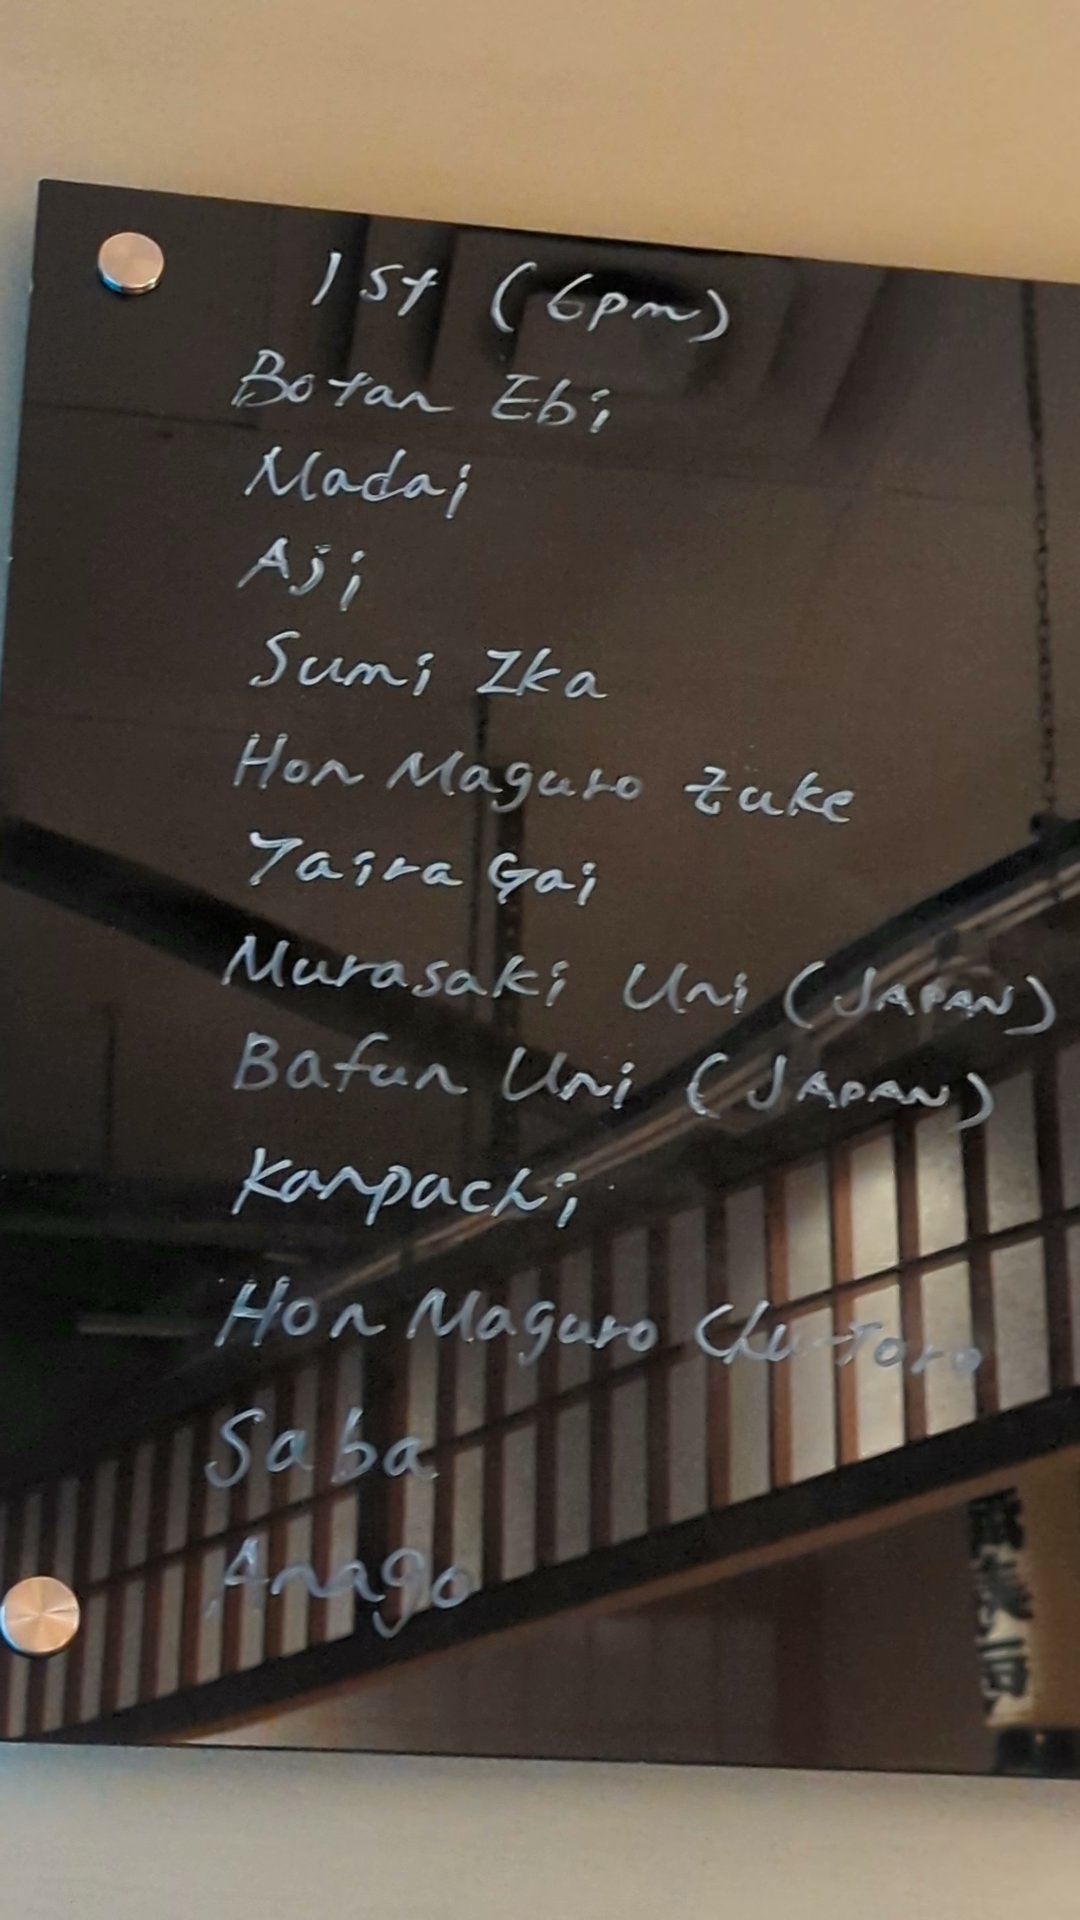 1st (6pm)
Botan Ebi
Madai
Aji
Sumi Ika
Hon Maguro Zuke
Taira Gai
Murasaki Uni (JAPAN)
Bafun Uni (JAPAN)
Kanpachi
Hon Maguro Chu-Toro
Saba
Anago